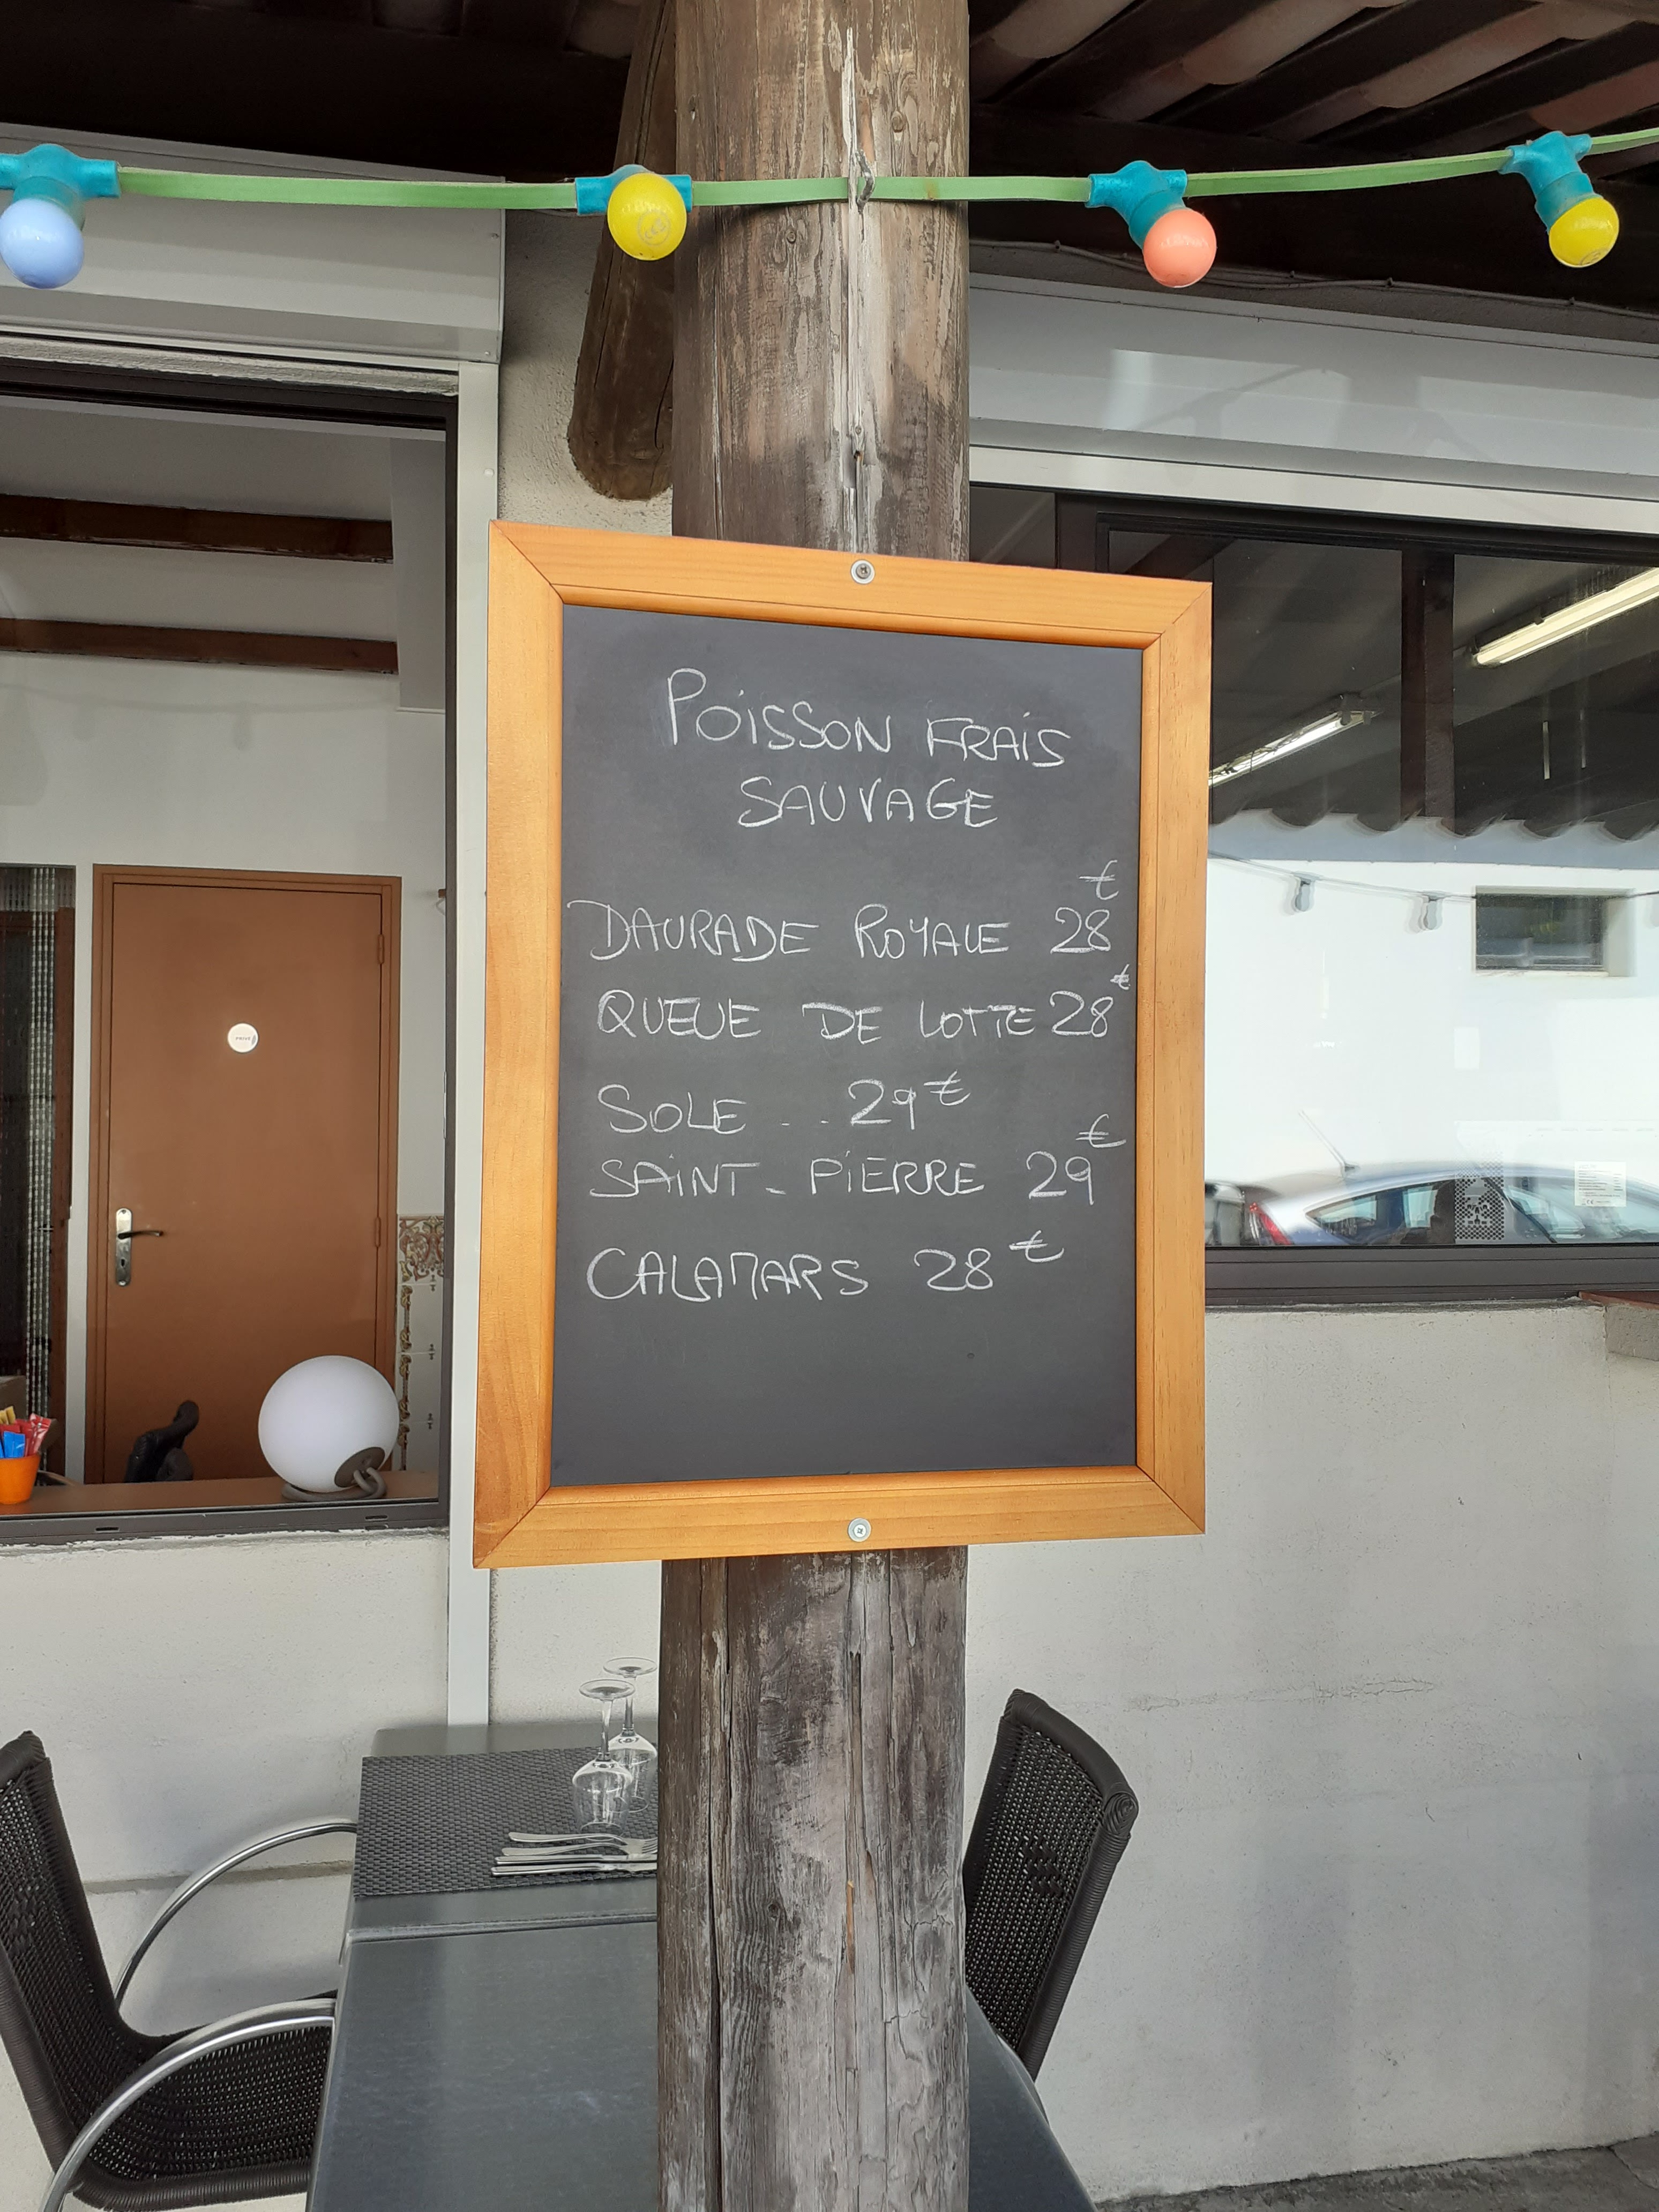 POISSON FRAIS
SAUVAGE
DAURADE ROYALE 28€
QUEUE DE LOTTE 28€
SOLE .. 29€
SAINT-PIERRE 29€
CALAMARS 28€
PRIVÉ